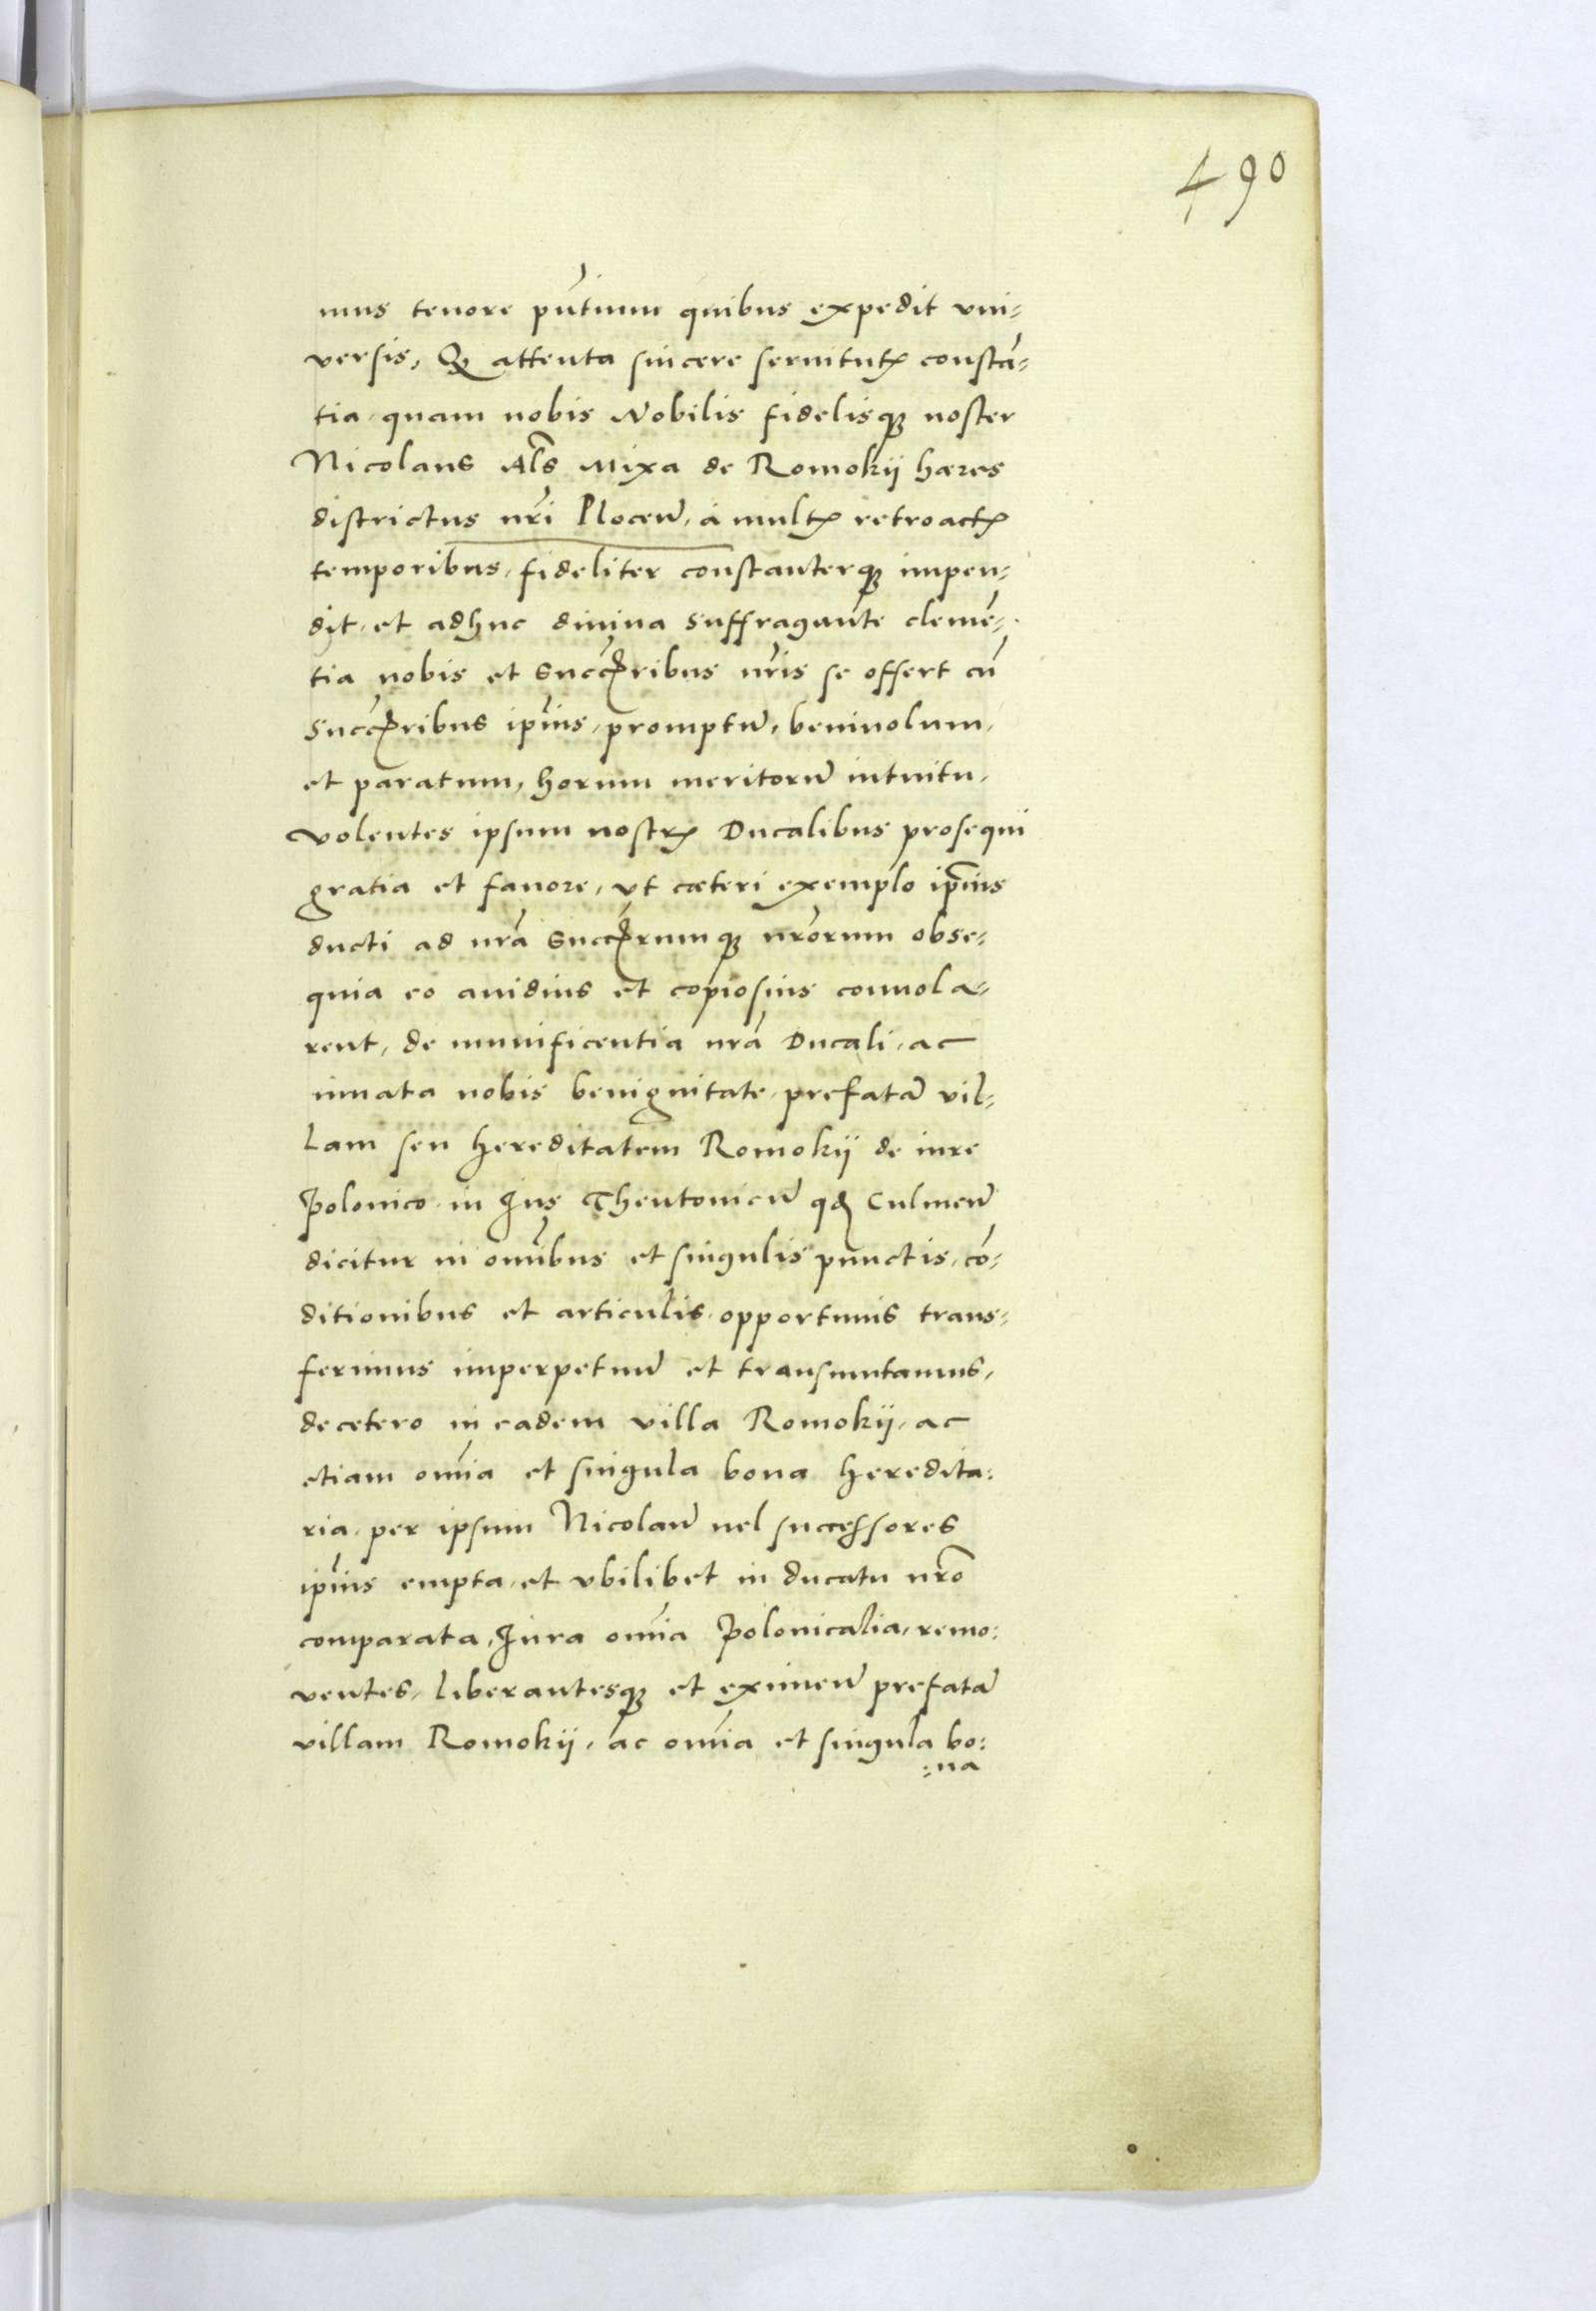 490
mus tenore pn̄tium quibus expedit vni-
versis, Q̨ attenta sincere seruitutꝭ constā-
tia, quam nobis Nobilis fidelisqꝫ noster
Nicolaus Al̄s Mixa de Romokij hæres
districtus nr̄i Plocen̄, à multꝭ retroactꝭ
temporibus, fideliter constanterqꝫ impen-
dit, et adhuc diuina suffragante clemē-
tia nobis et Succ̄ꝑribus nr̄is se offert cū
Succ̄ꝑribus ip̄ius, promptū, beniuolum,
et paratum, horum meritorū intuitu,
volentes ipsum nostrꝭ Ducalibus prosequi
gratia et fauore, vt cæteri exemplo ip̄ius
ducti ad nr̄ā Succ̄ꝑrumqꝫ nr̄orum obse-
quia eo auidius et copiosius conuola-
rent, de munificentia nr̄ā Ducali, ac
innata nobis benignitate, prefatā vil-
lam seu hereditatem Romokij de iure
Polonico in Jus Theutonicū qđ Culmen̄
dicitur in om̄ibus et singulis punctis, cō-
ditionibus et articulis opportunis trans-
ferimus imperpetuū et transmutamus,
decetero in eadem villa Romokij, ac
etiam om̄ia et singula bona heredita:
ria, per ipsum Nicolaū uel successores
ip̄ius empta, et vbilibet in ducatu nr̄o
comparata, Jura om̄ia Polonicalia, remo:
uentes, liberantesqꝫ et eximen̄ prefatā
villam Romokij, ac om̄ia et singula bo:
:na